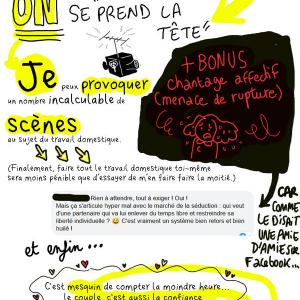 ON
SE PREND LA
TÊTE"
Je peux provoquer
un nombre incalculable de
scènes
au sujet du travail domestique.
(Finalement, faire tout le travail domestique toi-même
sera moins pénible que d'essayer de m'en faire faire la moitié.)
+ BONUS
chantage affectif
(menace de rupture)
Rien à attendre, tout à exiger ! Oui !
Mais ça s'articule hyper mal avec le marché de la séduction : qui veut
d'une partenaire qui va lui enlever du temps libre et restreindre sa
liberté individuelle ? 😅 C'est vraiment un système bien retors et bien
huilé !
CAR
COMME
LE DISAIT
UNE AMIE
D'AMIE SUR
Facebook...
et enfin...
C'est mesquin de compter la moindre heure...
le couple, c'est aussi la confiance